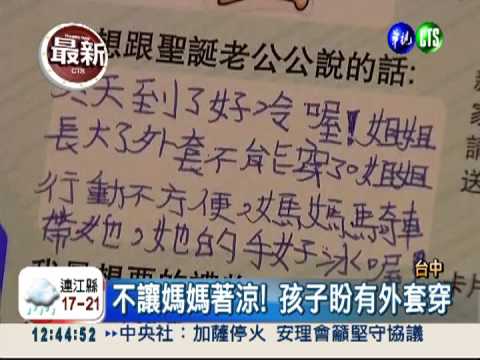 最新
CTS
華視
CTS
想跟聖誕老公公說的話:
冬天到了好冷喔!姐姐
長大了外套不能穿了。姐姐
行動不方便,媽媽騎車
帶她,她的手好冰喔
家
請
送
想要的
卡片
台中
連江縣
17-21
不讓媽媽著涼! 孩子盼有外套穿
12:44:52
中央社:加薩停火 安理會籲堅守協議